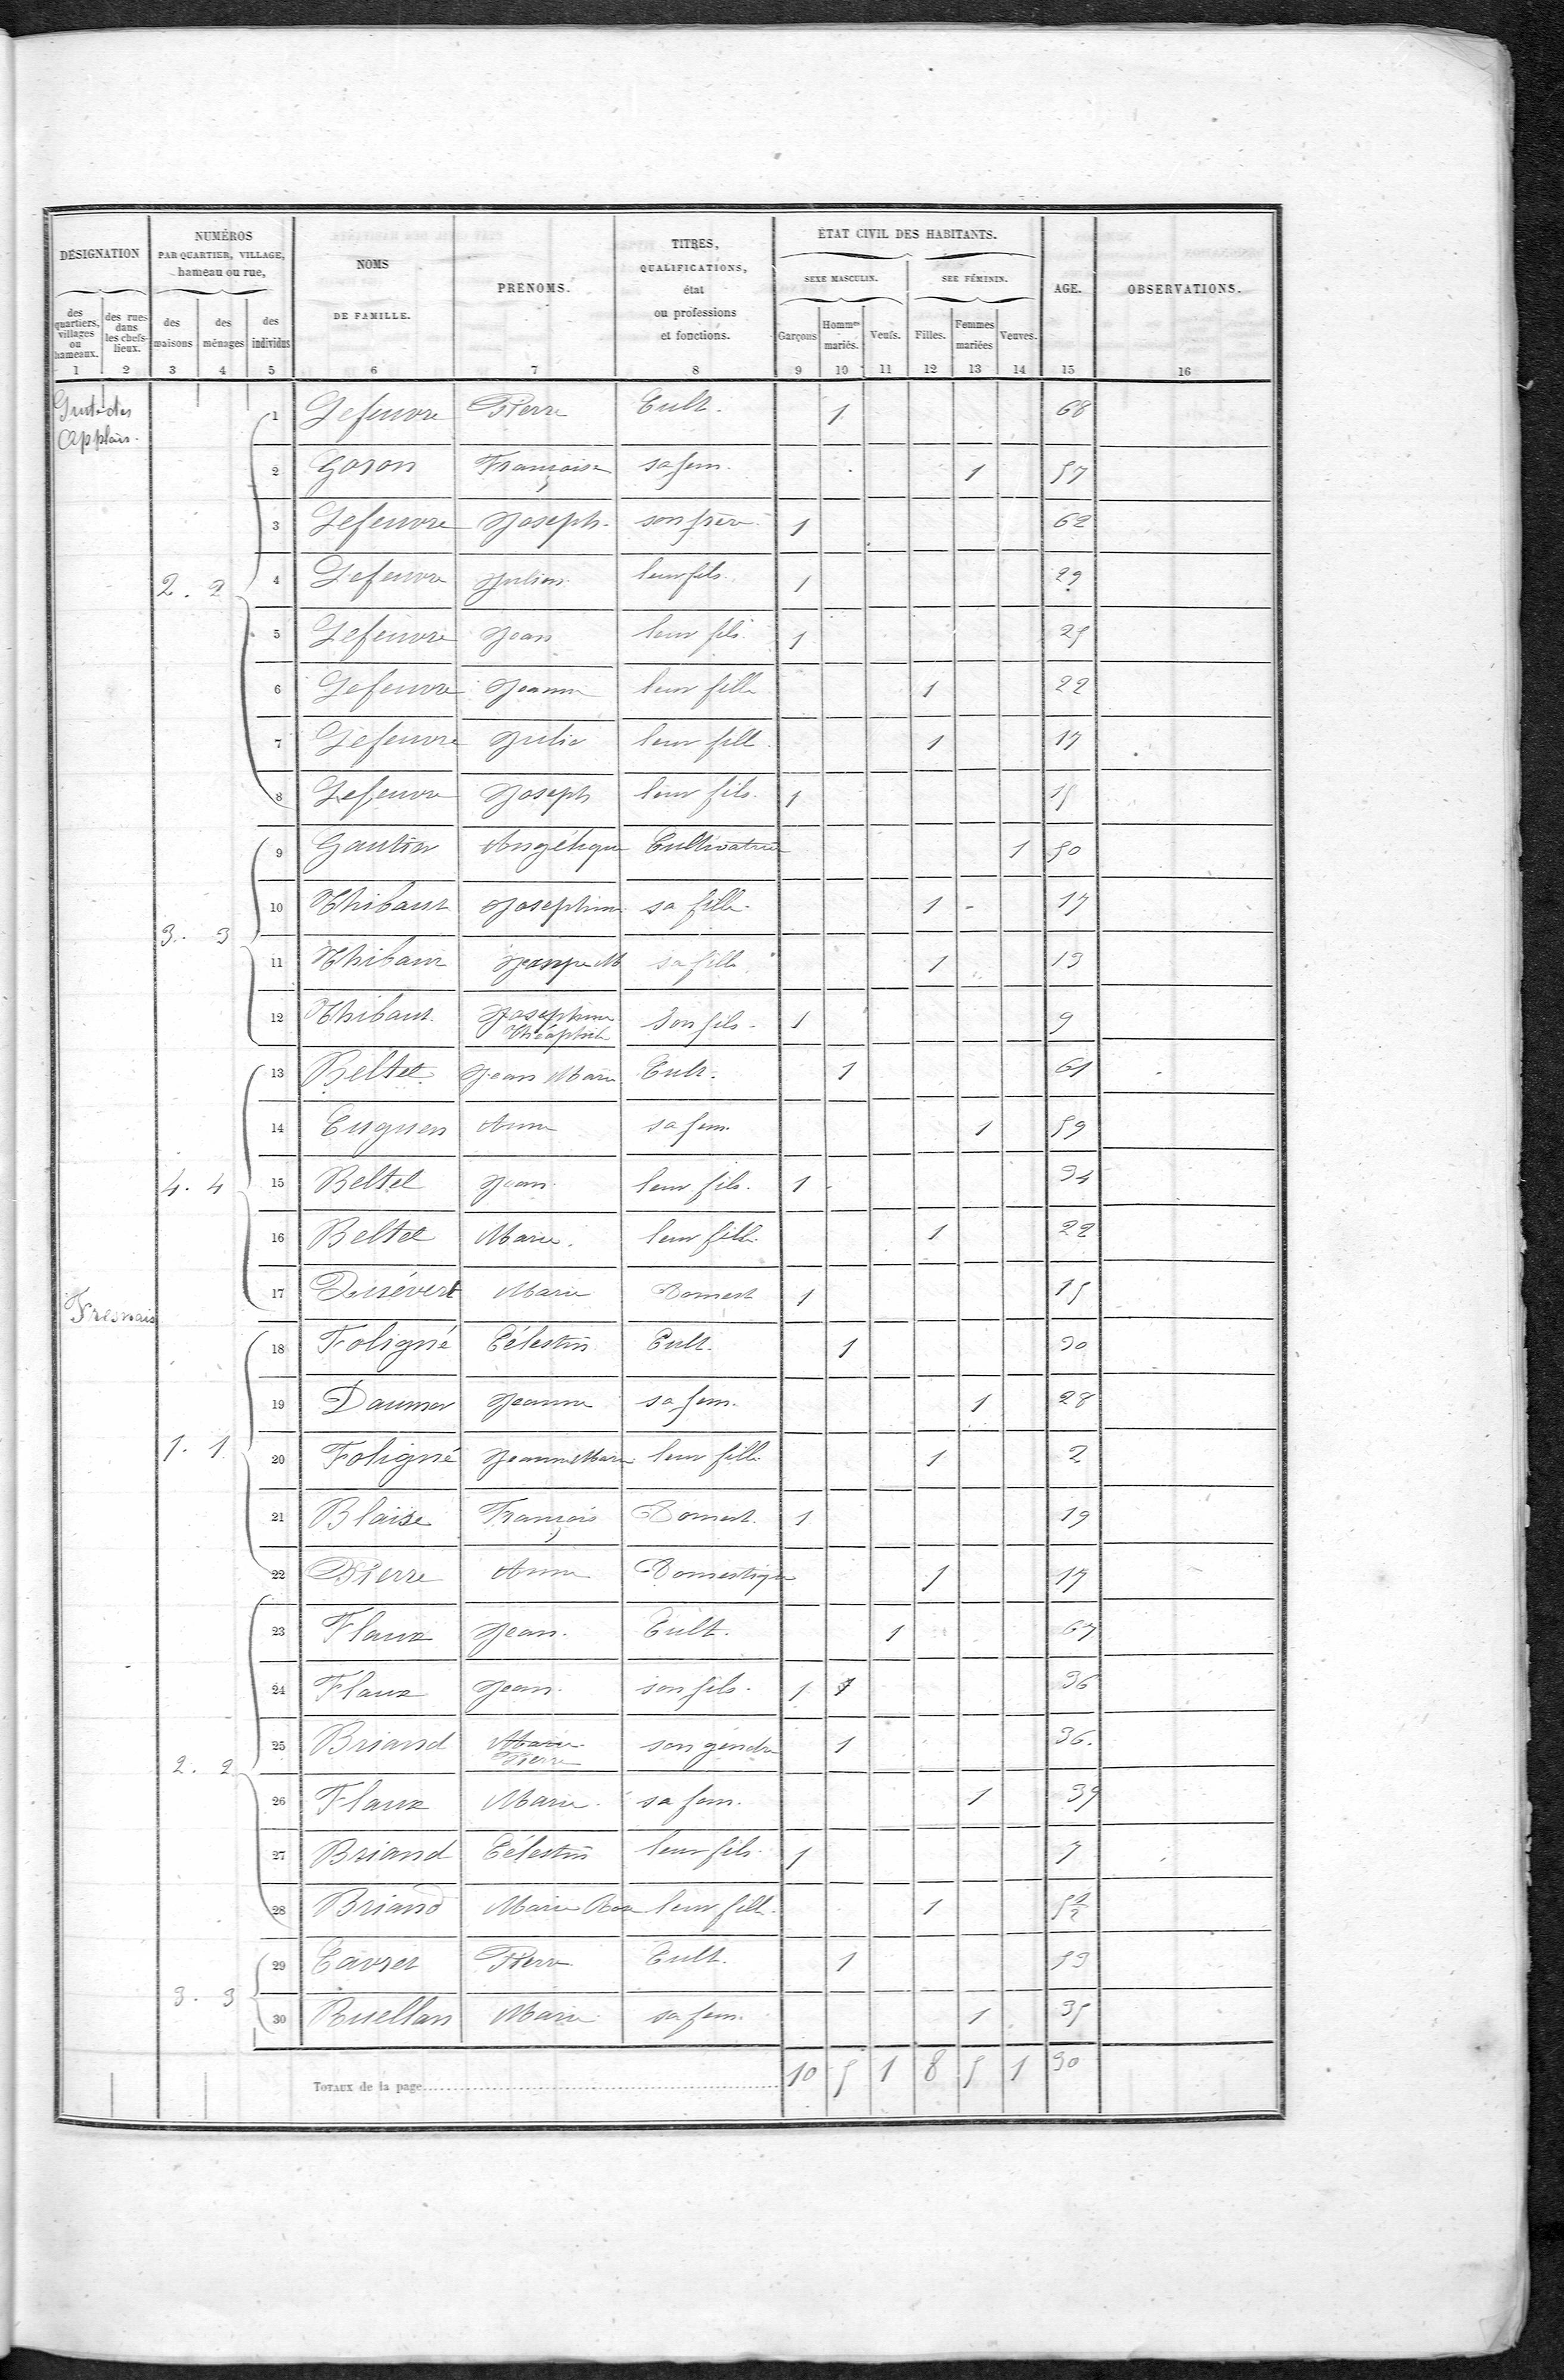 DÉSIGNATION
des quartiers, villages ou hameaux.
des rues dans les chefs-lieux.
NUMÉROS
PAR QUARTIER, VILLAGE,
hameau ou rue,
des maisons
des ménages
des individus
NOMS
DE FAMILLE.
PRÉNOMS.
TITRES,
QUALIFICATIONS,
état
ou professions
et fonctions.
ÉTAT CIVIL DES HABITANTS.
SEXE MASCULIN.
SEE FÉMININ.
Garçons
Hommes mariés.
Veufs.
Filles.
Femmes mariées
Veuves.
AGE.
OBSERVATIONS.
1 2 3 4 5 6 7 8 9 10 11 12 13 14 15 16
1 Lefeuvre Pierre Cult. 1 68
2 Goron Françoise sa fem. 1 57
3 Lefeuvre Joseph son frère 1 62
2. 2
4 Lefeuvre Julien leur fils 1 29
5 Lefeuvre Jean leur fils 1 25
6 Lefeuvre Jeanne leur fille 1 22
7 Lefeuvre Julie leur fille 1 17
8 Lefeuvre Joseph leur fils 1 15
9 Gautier Angélique Cultivatrice 1 50
10 Thibaut Josephine sa fille 1 17
3. 3
11 Thibaut sa fille 1 13
12 Thibaut Son fils 1 9
13 Beltel Jean Marie Cult. 1 61
14 Anne sa fem. 1 59
4. 4
15 Beltel Jean leur fils 1 34
16 Beltel Marie leur fille 1 22
17 Marie Domest 1 15
Fresnais
18 Foligné Célestin Cult. 1 30
19 Daumer Jeanne sa fem. 1 28
1. 1
20 Foligné Jeanne Marie leur fille 1 2
21 Blaise François Domest. 1 19
22 Pierre Anne Domestique 1 17
23 Flaux Jean Cult. 1 67
24 Flaux Jean son fils 1 1 36
25 Briand Marie Pierre son gendre 1 36
2. 2
26 Flaux Marie sa fem. 1 39
27 Briand Célestin leur fils 1 7
28 Briand Marie Rose leur fille 1
29 Pierre Cult. 1 53
3. 3
30 Ruellan Marie sa fem. 1 35
TOTAUX de la page 10 5 1 8 5 1 30